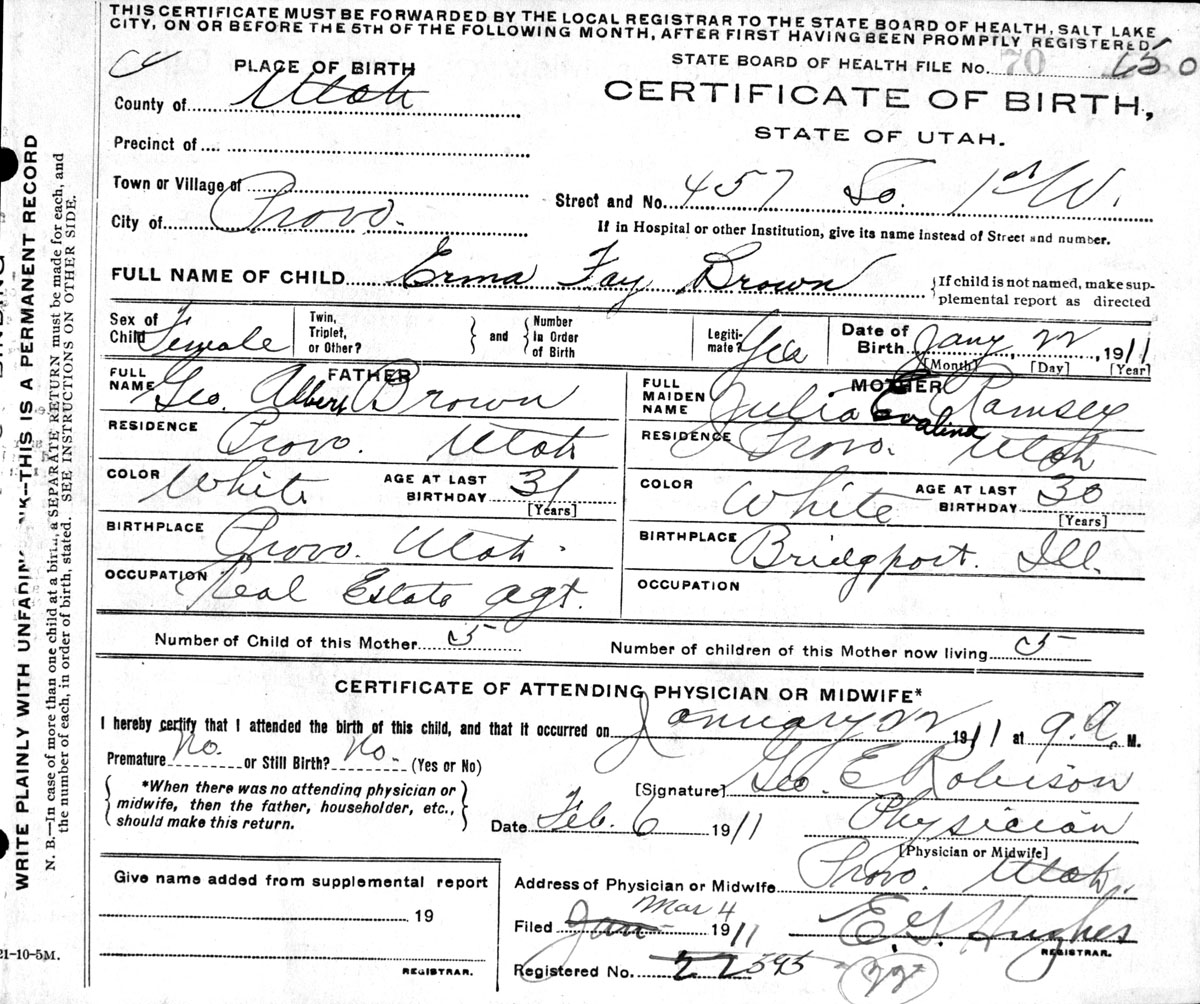 THIS CERTIFICATE MUST BE FORWARDED BY THE LOCAL REGISTRAR TO THE STATE BOARD OF HEALTH, SALT LAKE
CITY, ON OR BEFORE THE 5TH OF THE FOLLOWING MONTH, AFTER FIRST HAVING BEEN PROMPTLY REGISTERED
STATE BOARD OF HEALTH FILE No. 70 650
PLACE OF BIRTH
CERTIFICATE OF BIRTH,
County of Utah
STATE OF UTAH.
Precinct of
Town or Village of
Street and No. 457 So. 1st W.
City of Provo.
If in Hospital or other Institution, give its name instead of Street and number.
FULL NAME OF CHILD Erma Fay Brown
If child is not named, make sup-
plemental report as directed
Sex of Child Female
Twin, Triplet, or Other? and Number in Order of Birth
Legiti-mate? Yes
Date of Birth Jany. 22, 1911
[Month] [Day] [Year]
FATHER
FULL NAME Geo. Albert Brown
RESIDENCE Provo. Utah
COLOR White AGE AT LAST BIRTHDAY 31
[Years]
BIRTHPLACE Provo. Utah.
OCCUPATION Real Estate Agt.
MOTHER
FULL MAIDEN NAME Julia Evalina Ramsey
RESIDENCE Provo. Utah
COLOR White AGE AT LAST BIRTHDAY 30
[Years]
BIRTHPLACE Bridgport. Ill.
OCCUPATION
Number of Child of this Mother 5
Number of children of this Mother now living 5
CERTIFICATE OF ATTENDING PHYSICIAN OR MIDWIFE*
I hereby certify that I attended the birth of this child, and that it occurred on January 22 1911 at 9 a. M.
Premature No. or Still Birth? No. (Yes or No)
[Signature] Geo. E. Robison
*When there was no attending physician or
midwife, then the father, householder, etc.,
should make this return.
Date Feb. 6 1911
Physician
[Physician or Midwife]
Address of Physician or Midwife Provo. Utah.
Give name added from supplemental report
19
REGISTRAR.
Filed Jan Mar 4 1911
E. G. Hughes
REGISTRAR.
Registered No. 22 395 22
21-10-5M.
WRITE PLAINLY WITH UNFADING INK—THIS IS A PERMANENT RECORD
N. B.—In case of more than one child at a birth, a SEPARATE RETURN must be made for each, and
the number of each, in order of birth, stated. SEE INSTRUCTIONS ON OTHER SIDE.